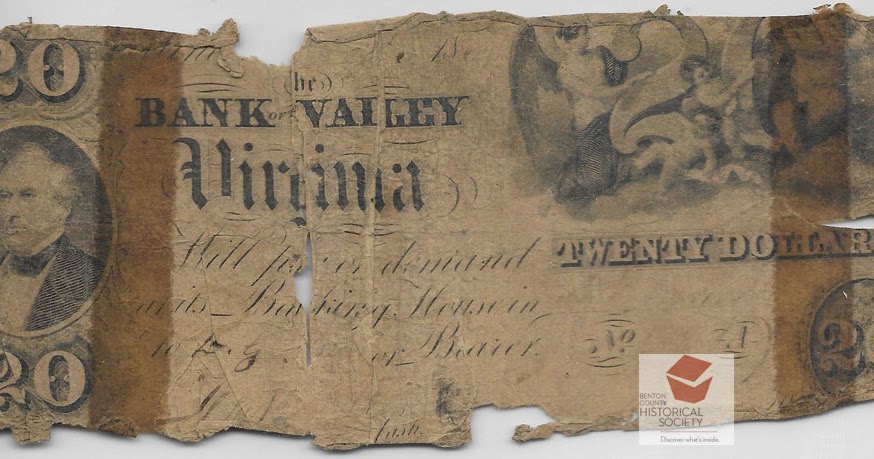 20
18
The
BANK OF THE VALLEY
Virginia
TWENTY DOLLAR
Will pay on demand
at its Banking House in
to
or Bearer.
No A
20
Cash
BENTON
COUNTY
HISTORICAL
SOCIETY
Discover what's inside.